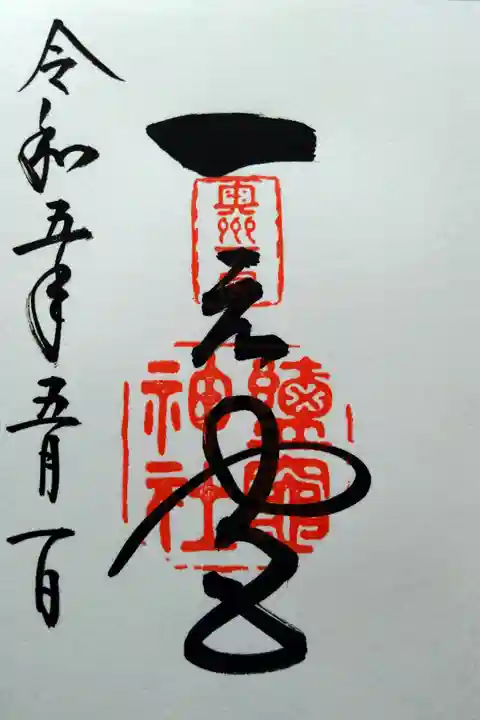 一之宮
奥州一宮
鹽竈
神社
令和五年五月一日